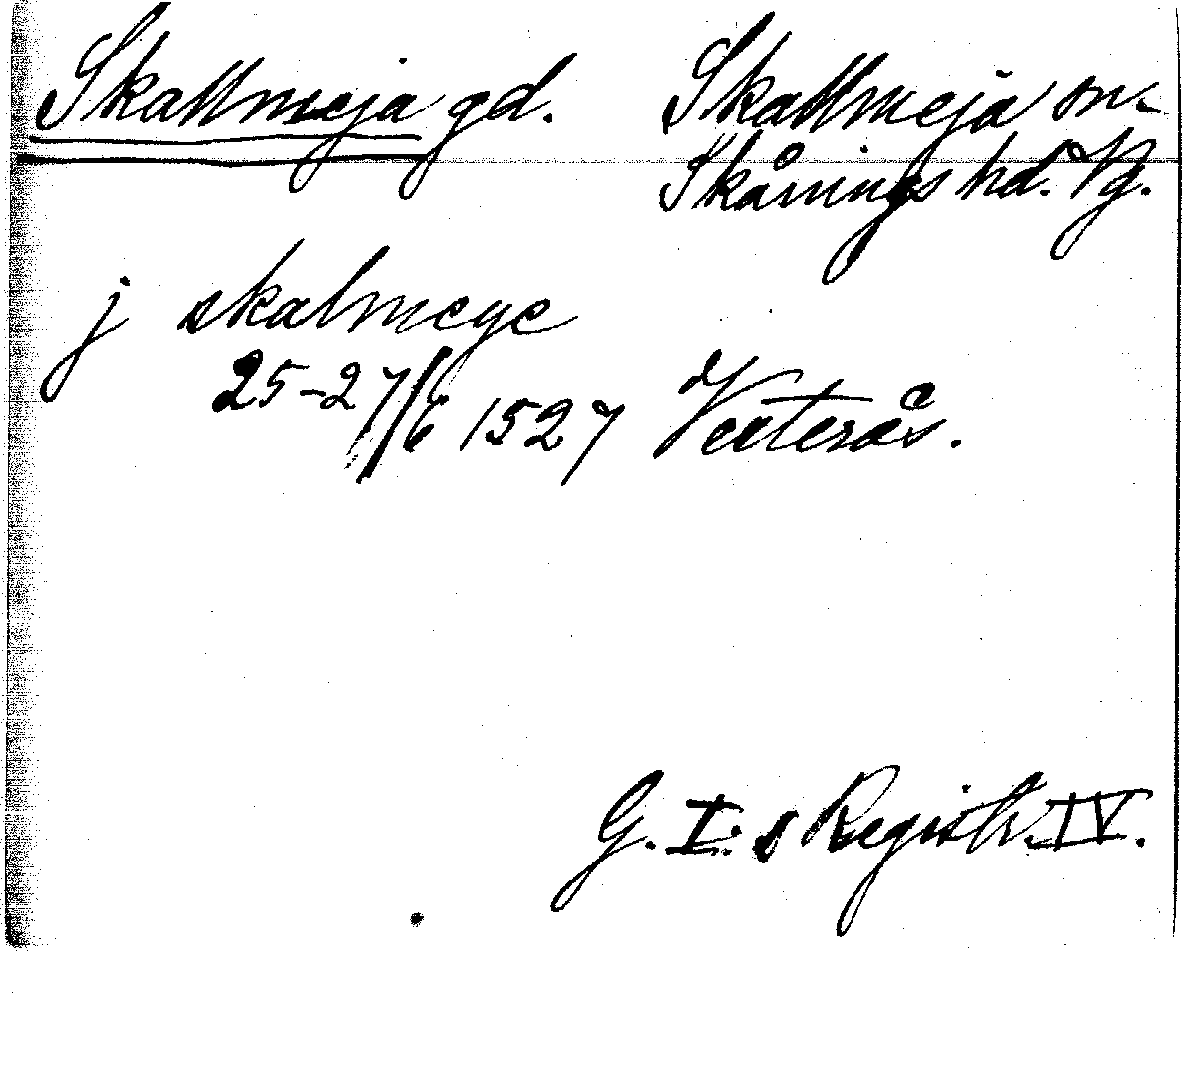 Skallmeja gd. Skallmeja sn.
Skånings hd. Vg.
j skalmeye
25-27/6 1527 Vesterås.
G. I:s Registr. IV.